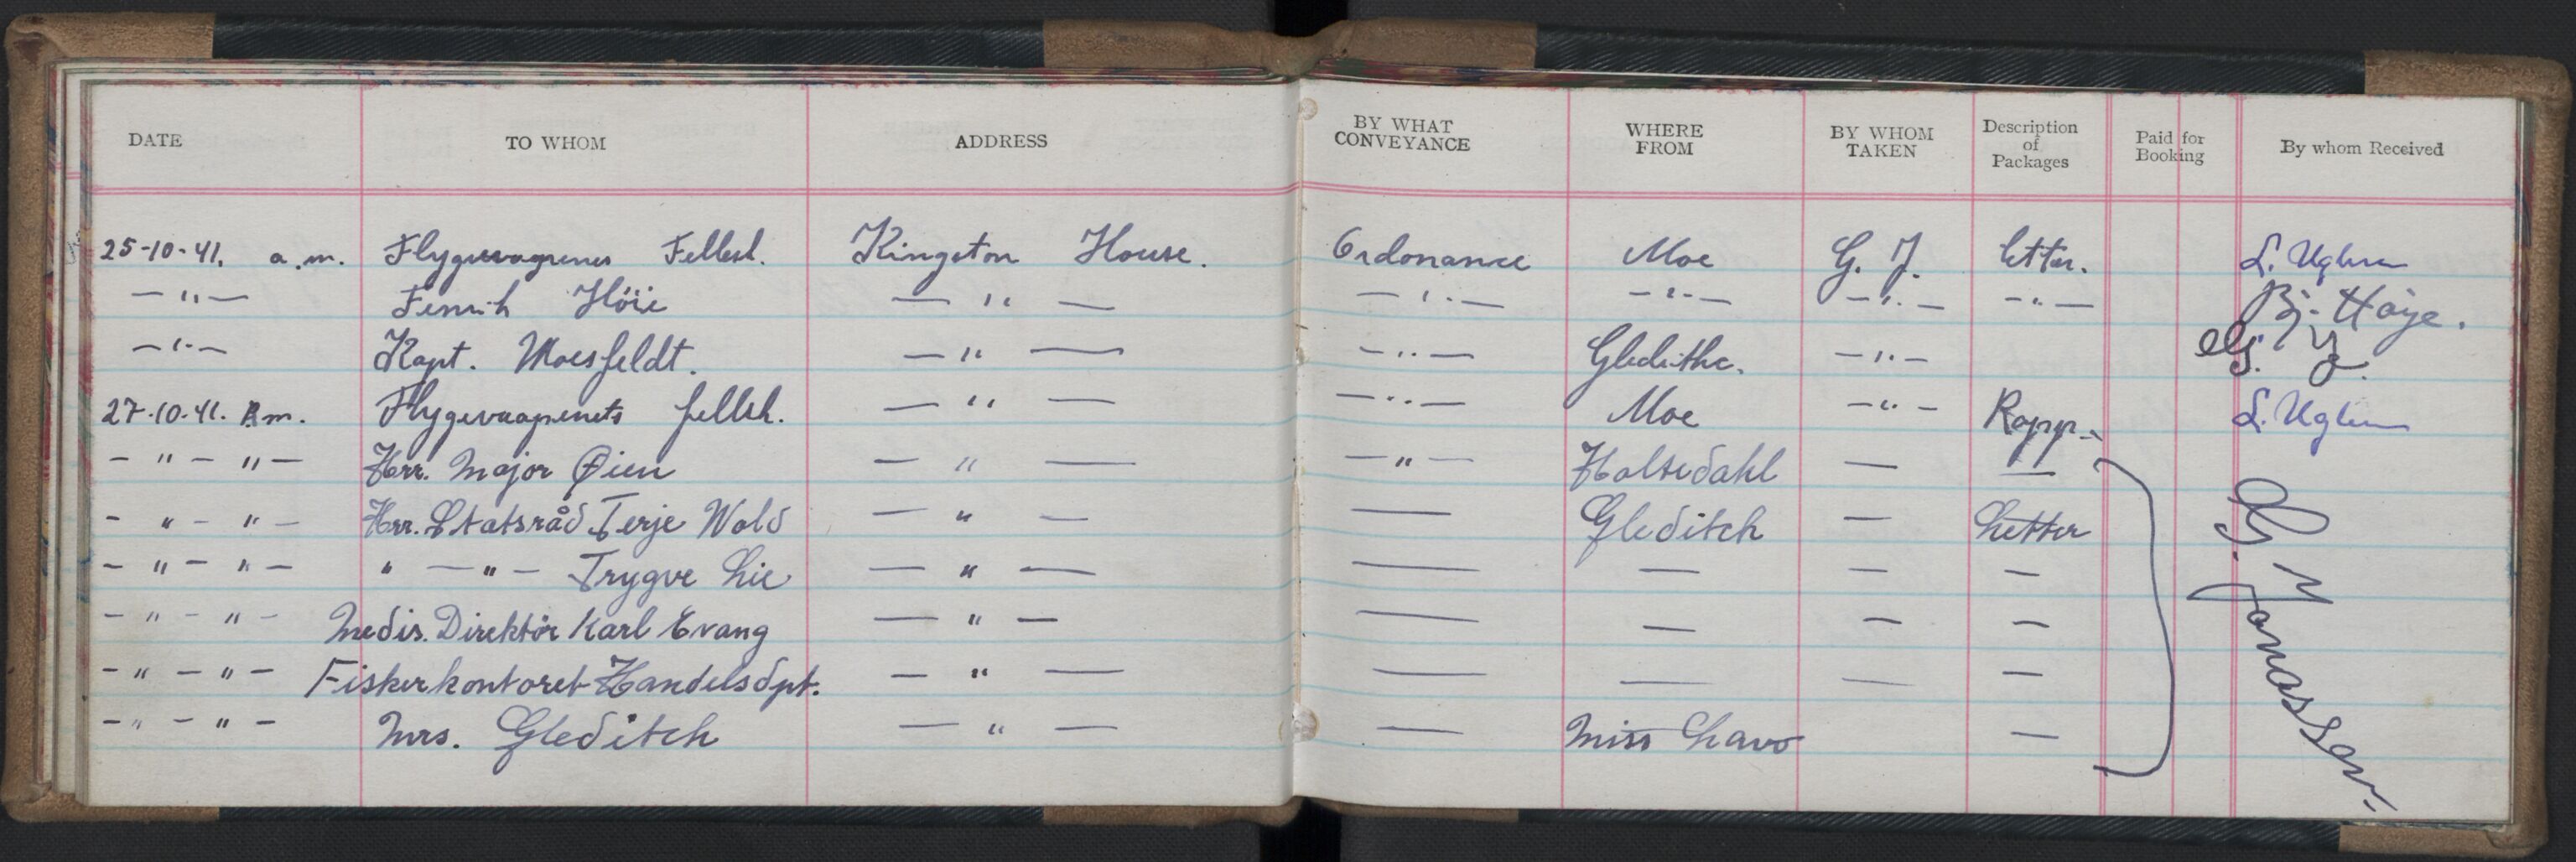 DATE TO WHOM ADDRESS BY WHAT CONVEYANCE WHERE FROM BY WHOM TAKEN Description of Packages Paid for Booking By whom Received
25-10-41. a.m. Flygevaapnenes Fellesk. Kingston House. Ordonance Moe G. J. letter. L. Uglum
— " — Fenrik Höie — " — — " — — " — — " — — " — Bj. Høye.
— " — Kapt. Moesfeldt. — " — — " — — " —
27-10-41. P.m. Flygevaapenets fellsk. — " — — " — Moe — " — Rapp. L. Uglum
— " — " — Herr. Major Øien — " — — " — Holtedahl — —
— " — " — Herr. Statsråd Terje Wold — " — — Gleditch — Letter
— " — " — " — " — Trygve Lie — " — — — — —
— " — " — Medis. Direktör Karl Evang — " — — — — —
— " — " — Fiskerkontoret Handelsdpt. — " — — — — —
— " — " — Mrs. Gleditch — " — — Miss —
G. Jonassen.